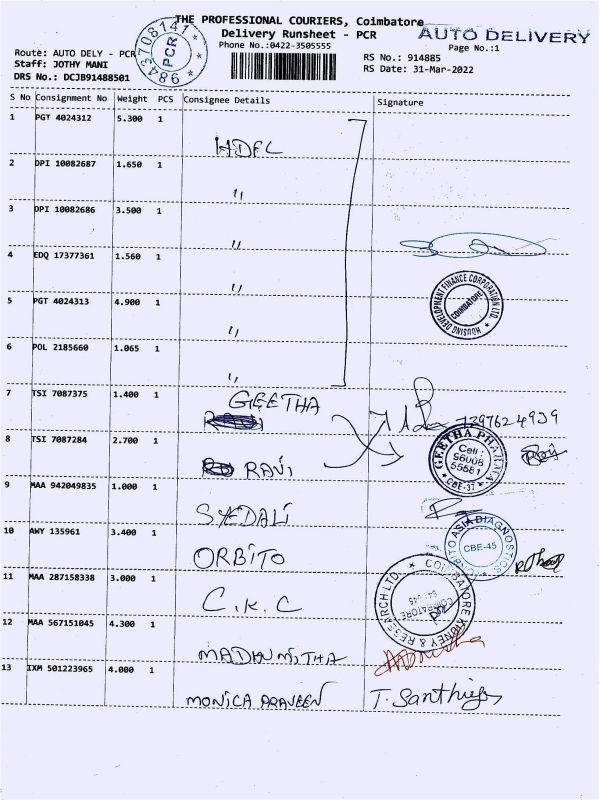 THE PROFESSIONAL COURIERS, Coimbatore
Delivery Runsheet - PCR
AUTO DELIVERY
Phone No.:0422-3505555
Page No.:1
Route: AUTO DELY - PCR
Staff: JOTHY MANI
DRS No.: DCJB91488501
9843708141 PCR
RS No.: 914885
RS Date: 31-Mar-2022
S No Consignment No Weight PCS Consignee Details Signature
1 PGT 4024312 5.300 1
HDFC
2 DPI 10082687 1.650 1
"
3 DPI 10082686 3.500 1
"
4 EDQ 17377361 1.560 1
"
HOUSING DEVELOPMENT FINANCE CORPORATION LTD. COIMBATORE
5 PGT 4024313 4.900 1
"
6 POL 2185660 1.065 1
"
7 TSI 7087375 1.400 1 GEETHA
7397624909
8 TSI 7087284 2.700 1 RAVI
GEETHA PHARMA Cell: 96008 55581 CBE-37
9 MAA 942049835 1.000 1
SYEDALI
10 AWY 135961 3.400 1
ORBITO
ORBITO ASIA DIAGNOSTICS CBE-45
11 MAA 287158338 3.000 1
C.K.C
COIMBATORE KIDNEY & RESEARCH LTD. COIMBATORE
12 MAA 567151045 4.300 1
MADHUMITHA
13 IXM 501223965 4.000 1
MONICA PRAVEEN T. Santhiya